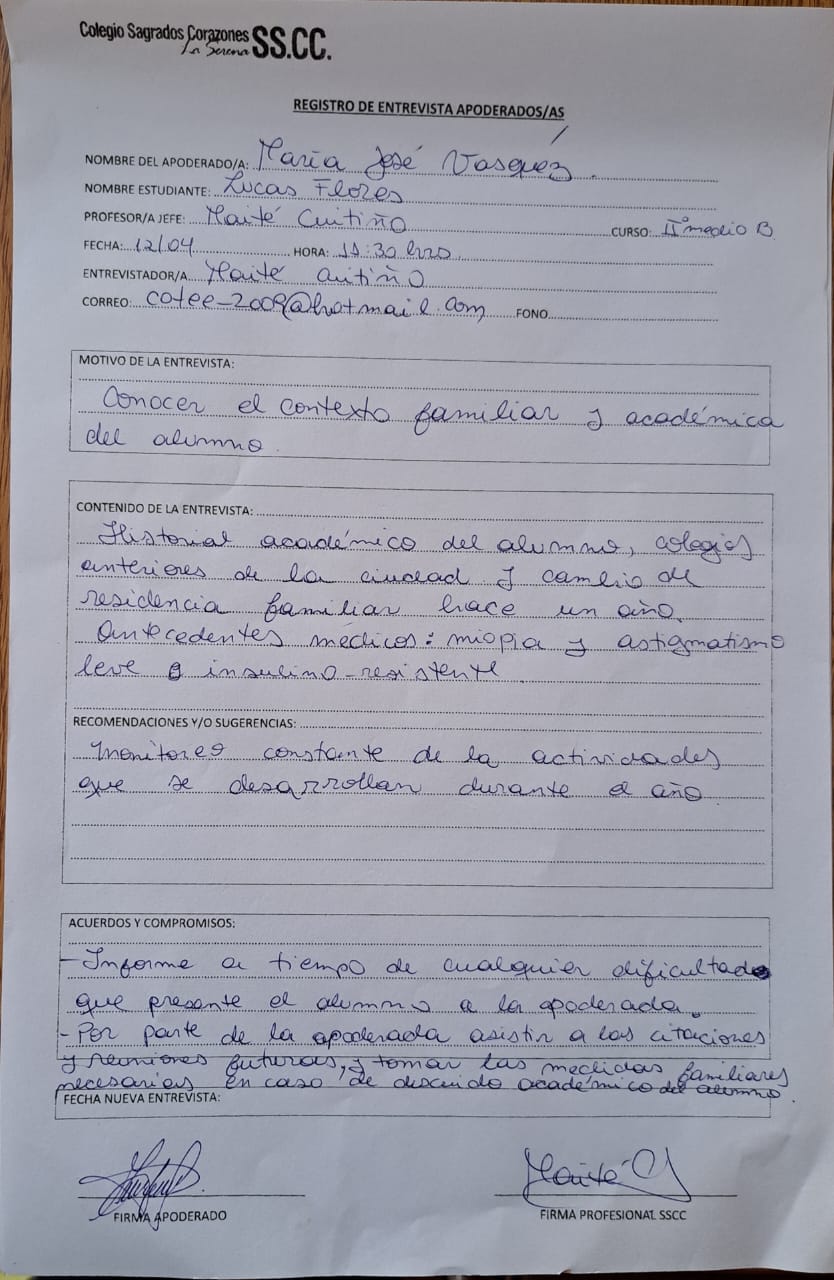 Colegio Sagrados Corazones SS.CC.
La Serena
REGISTRO DE ENTREVISTA APODERADOS/AS
NOMBRE DEL APODERADO/A: María José Vasquéz.
NOMBRE ESTUDIANTE: Lucas Flores
PROFESOR/A JEFE: Maité Cuitiño CURSO: IIº medio B
FECHA: 12/04 HORA: 11:30 hrs
ENTREVISTADOR/A Maité Cuitiño
CORREO: cotee_2009@hotmail.com FONO
MOTIVO DE LA ENTREVISTA:
Conocer el contexto familiar y académica
del alumno.
CONTENIDO DE LA ENTREVISTA:
Historial académico del alumno, colegios
anteriores de la ciudad y cambio de
residencia familiar hace un año.
Antecedentes médicos: miopia y astigmatismo
leve e insulino-resistente.
RECOMENDACIONES Y/O SUGERENCIAS:
Monitoreo constante de la actividades
que se desarrollan durante el año
ACUERDOS Y COMPROMISOS:
- Informe a tiempo de cualquier dificultad
que presente el alumno a la apoderada.
- Por parte de la apoderada asistir a las citaciones
y reuniones futuras, y tomar las medidas familiares
necesarias en caso de descuido académico del alumno.
FECHA NUEVA ENTREVISTA:
Maité C
FIRMA APODERADO FIRMA PROFESIONAL SSCC